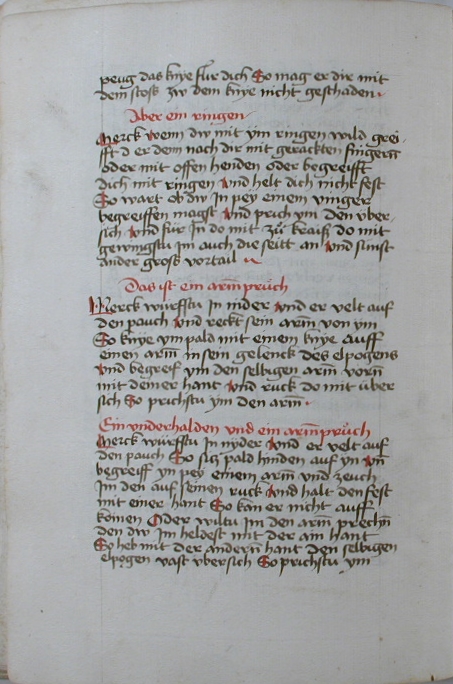 peug das knye fur dich So mag er dir mit
dem stoss zw dem knye nicht geschaden
Aber ein ringen
Merck wenn dw mit ym ringen wild grei-
fft er dem nach dir mit gerackten fingern
oder mit offen henden oder begreifft
dich mit ringen und helt dich nicht fest
So wart ob dw In pey einem vinger
begreiffen magst und prich ym den vber-
sich und fur In do mit zů kraiß do mit
gewingstu im auch die seitt an und sunst
ander gross vortail
Das ist ein arm pruch
Merck würfstu In nider und er velt auf
den pauch und reckt sein arm von ym
So knye ym pald mit einem knye auff
einen arm in sein gelenck des elpogens
und begreif ym den selbigen arm vorn
mit deiner hant und ruck do mit über
sich So prichstu ym den arm
Ein underhalden und ein arm pruch
Merck würfstu In nyder und er velt auf
den pauch So sitz pald hinden auf yn vnd
begreiff yn pey einem arm und zeuch
Im den auf seinen ruck und halt den fest
mit einer hant So kan er nicht auff
komen Oder wiltu Im den arm prechn
den dw Im heldest mit der ain hant
So heb mit der andern hant den selbigen
elpogen vast vbersich So prichstu ym